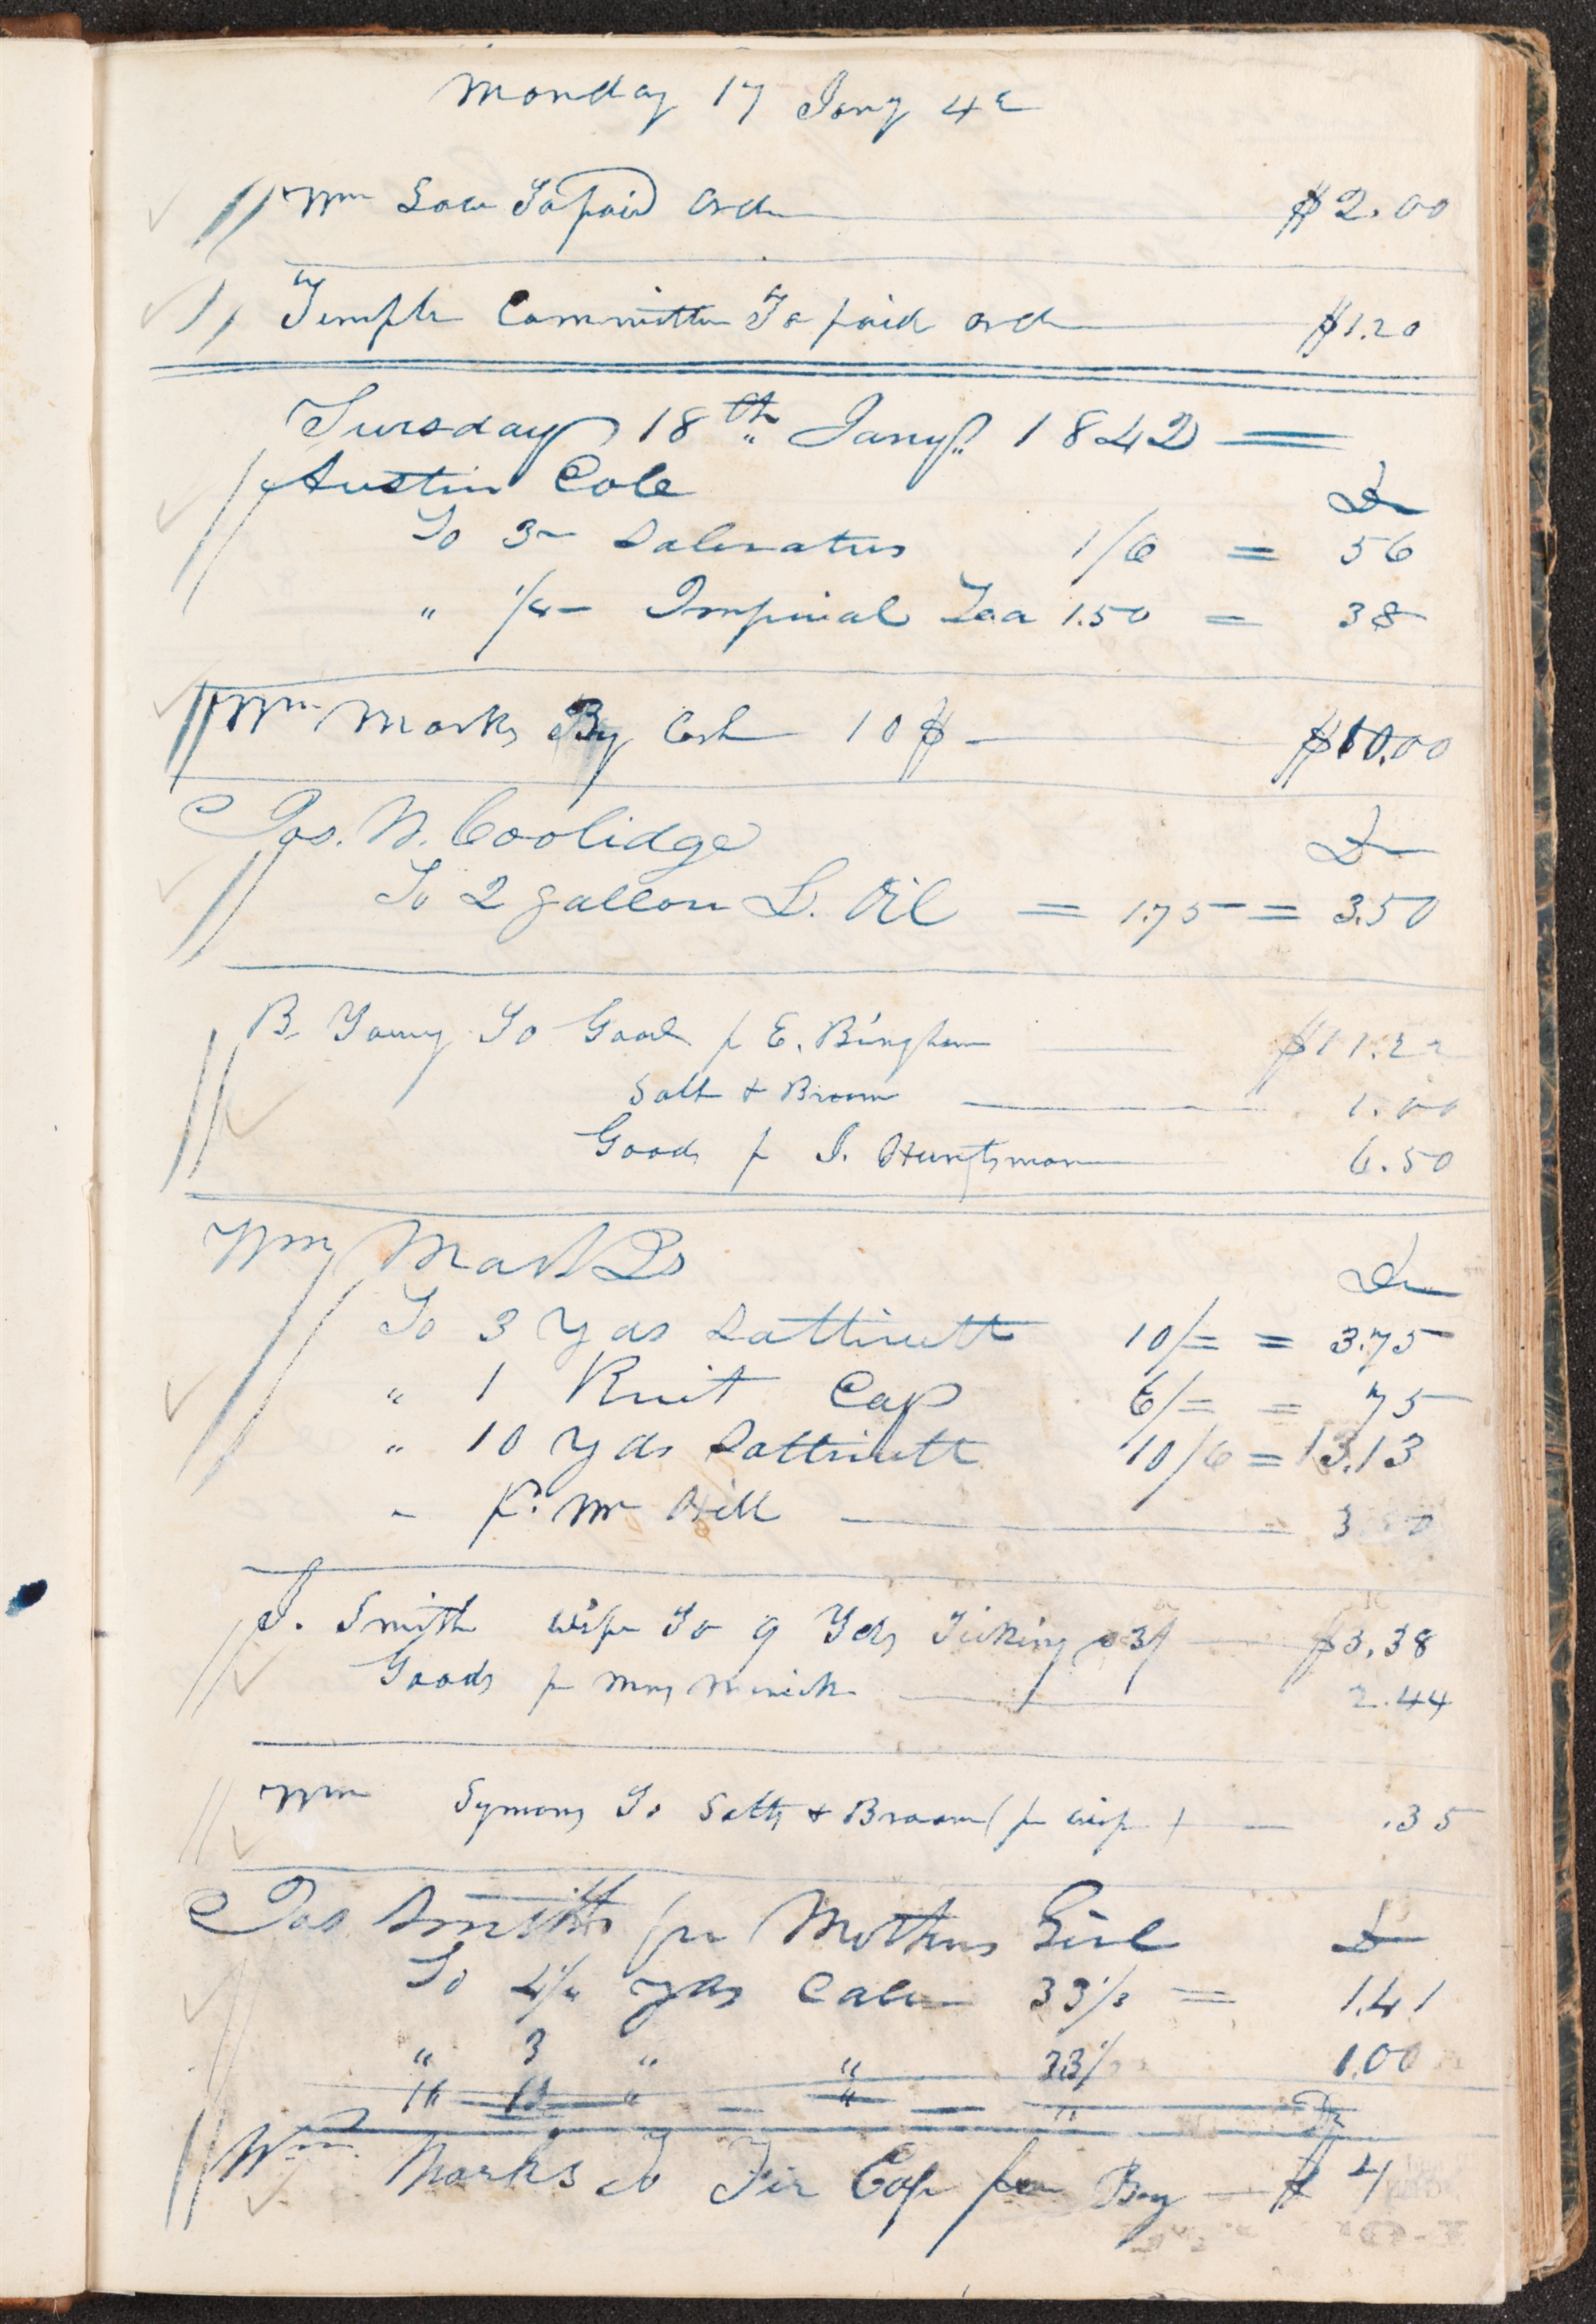 Monday 17 Jany 42
Wm Law To paid Ord $2.00
Temple Committee To paid ord $1.20
Tuesday 18th Jany 1842
Austin Cole Dr
To 3 Saleratus 1/6 = 56
" 1/4 Imperial Tea 1.50 = 38
Wm Marks By Cash 10$ $10.00
Jos. W. Coolidge Dr
To 2 gallon L. Oil = 1.75 = 3.50
B. Young To Goods p E. Bingham $11.22
Salt & Broom 1.00
Goods p J. Huntsman 6.50
Wm Marks Dr
To 3 Yds Sattinett 10/= = 3.75
" 1 Knit Cap 6/= = 75
" 10 Yds Sattinett 10/6 = 13.13
" p. Mr Hill 3
J. Smith wife To 9 Yds Ticking 3/ $3.38
Goods p 2.44
Wm Symons To Salts & Broom (p wife) .35
Jos Smith per Mothers Girl Dr
To 4 1/4 yds Calico 33 1/3 = 1.41
" 3 " " 33 1/3 1.00
" 13 " " " Dr
Wm Marks To Fir Cap per Boy $4